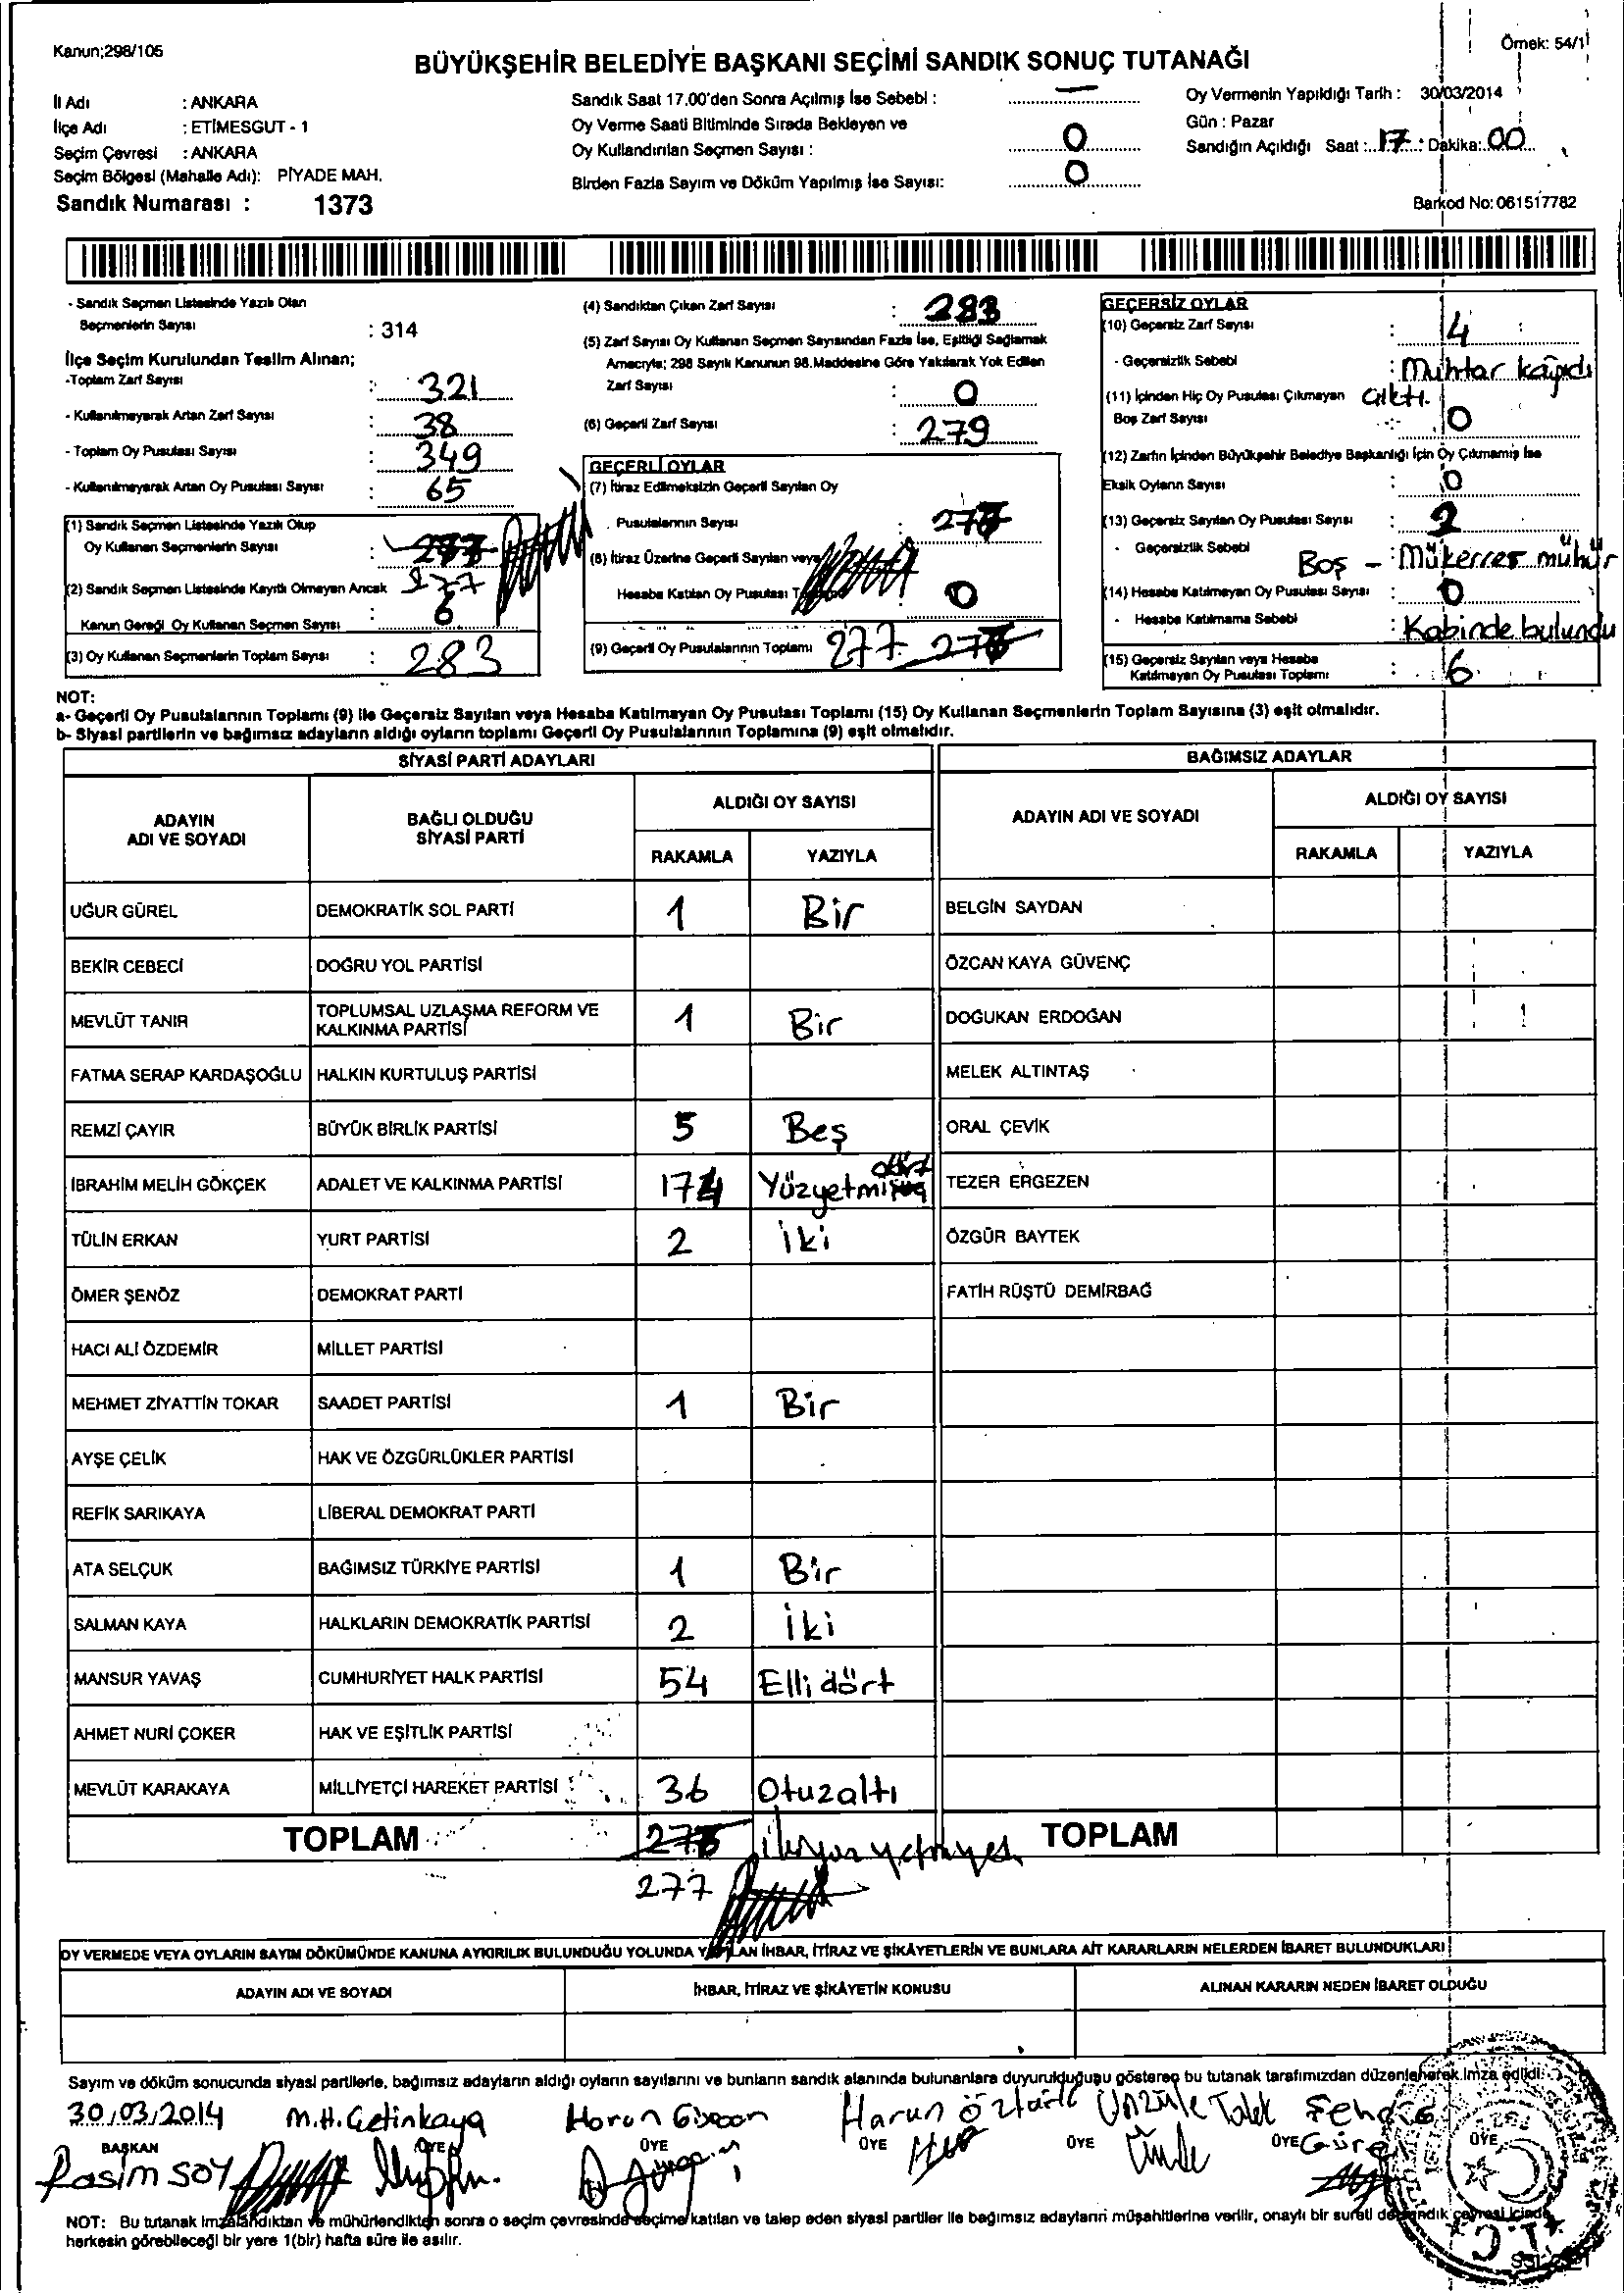 Kanun;298/105
Örnek: 54/1
BÜYÜKŞEHİR BELEDİYE BAŞKANI SEÇİMİ SANDIK SONUÇ TUTANAĞI
İl Adı : ANKARA
İlçe Adı : ETİMESGUT - 1
Seçim Çevresi : ANKARA
Seçim Bölgesi (Mahalle Adı): PİYADE MAH.
Sandık Numarası : 1373
Sandık Saat 17.00'den Sonra Açılmış İse Sebebi : —
Oy Verme Saati Bitiminde Sırada Bekleyen ve
Oy Kullandırılan Seçmen Sayısı : 0
Birden Fazla Sayım ve Döküm Yapılmış İse Sayısı: 0
Oy Vermenin Yapıldığı Tarih : 30/03/2014
Gün : Pazar
Sandığın Açıldığı Saat : 17 : Dakika: 00
Barkod No: 061517782
- Sandık Seçmen Listesinde Yazılı Olan
Seçmenlerin Sayısı : 314
İlçe Seçim Kurulundan Teslim Alınan;
-Toplam Zarf Sayısı : 321
- Kullanılmayarak Artan Zarf Sayısı : 38
- Toplam Oy Pusulası Sayısı : 349
- Kullanılmayarak Artan Oy Pusulası Sayısı : 65
(1) Sandık Seçmen Listesinde Yazılı Olup
Oy Kullanan Seçmenlerin Sayısı : 277
277
(2) Sandık Seçmen Listesinde Kayıtlı Olmayan Ancak
Kanun Gereği Oy Kullanan Seçmen Sayısı : 6
(3) Oy Kullanan Seçmenlerin Toplam Sayısı : 283
(4) Sandıktan Çıkan Zarf Sayısı : 283
(5) Zarf Sayısı Oy Kullanan Seçmen Sayısından Fazla İse, Eşitliği Sağlamak
Amacıyla; 298 Sayılı Kanunun 98.Maddesine Göre Yakılarak Yok Edilen
Zarf Sayısı : 0
(6) Geçerli Zarf Sayısı : 279
GEÇERLİ OYLAR
(7) İtiraz Edilmeksizin Geçerli Sayılan Oy
Pusulalarının Sayısı : 277
(8) İtiraz Üzerine Geçerli Sayılan veya
Hesaba Katılan Oy Pusulası 0
(9) Geçerli Oy Pusulalarının Toplamı 277
GEÇERSİZ OYLAR
(10) Geçersiz Zarf Sayısı : 4
- Geçersizlik Sebebi : Muhtar kağıdı
çıktı.
(11) İçinden Hiç Oy Pusulası Çıkmayan
Boş Zarf Sayısı 0
(12) Zarfın İçinden Büyükşehir Belediye Başkanlığı İçin Oy Çıkmamış İse
Eksik Oyların Sayısı : 0
(13) Geçersiz Sayılan Oy Pusulası Sayısı : 2
- Geçersizlik Sebebi Boş - Mükerrer mühür
(14) Hesaba Katılmayan Oy Pusulası Sayısı : 0
- Hesaba Katılmama Sebebi : Kabinde bulundu
(15) Geçersiz Sayılan veya Hesaba
Katılmayan Oy Pusulası Toplamı : 6
NOT:
a- Geçerli Oy Pusulalarının Toplamı (9) ile Geçersiz Sayılan veya Hesaba Katılmayan Oy Pusulası Toplamı (15) Oy Kullanan Seçmenlerin Toplam Sayısına (3) eşit olmalıdır.
b- Siyasi partilerin ve bağımsız adayların aldığı oyların toplamı Geçerli Oy Pusulalarının Toplamına (9) eşit olmalıdır.
SİYASİ PARTİ ADAYLARI
BAĞIMSIZ ADAYLAR
ADAYIN ADI VE SOYADI
BAĞLI OLDUĞU SİYASİ PARTİ
ALDIĞI OY SAYISI
RAKAMLA YAZIYLA
ADAYIN ADI VE SOYADI
ALDIĞI OY SAYISI
RAKAMLA YAZIYLA
UĞUR GÜREL DEMOKRATİK SOL PARTİ 1 Bir BELGİN SAYDAN
BEKİR CEBECİ DOĞRU YOL PARTİSİ ÖZCAN KAYA GÜVENÇ
MEVLÜT TANIR TOPLUMSAL UZLAŞMA REFORM VE KALKINMA PARTİSİ 1 Bir DOĞUKAN ERDOĞAN
FATMA SERAP KARDAŞOĞLU HALKIN KURTULUŞ PARTİSİ MELEK ALTINTAŞ
REMZİ ÇAYIR BÜYÜK BİRLİK PARTİSİ 5 Beş ORAL ÇEVİK
İBRAHİM MELİH GÖKÇEK ADALET VE KALKINMA PARTİSİ 174 Yüzyetmiş dört TEZER ERGEZEN
TÜLİN ERKAN YURT PARTİSİ 2 İki ÖZGÜR BAYTEK
ÖMER ŞENÖZ DEMOKRAT PARTİ FATİH RÜŞTÜ DEMİRBAĞ
HACI ALİ ÖZDEMİR MİLLET PARTİSİ
MEHMET ZİYATTİN TOKAR SAADET PARTİSİ 1 Bir
AYŞE ÇELİK HAK VE ÖZGÜRLÜKLER PARTİSİ
REFİK SARIKAYA LİBERAL DEMOKRAT PARTİ
ATA SELÇUK BAĞIMSIZ TÜRKİYE PARTİSİ 1 Bir
SALMAN KAYA HALKLARIN DEMOKRATİK PARTİSİ 2 İki
MANSUR YAVAŞ CUMHURİYET HALK PARTİSİ 54 Elli dört
AHMET NURİ ÇOKER HAK VE EŞİTLİK PARTİSİ
MEVLÜT KARAKAYA MİLLİYETÇİ HAREKET PARTİSİ 36 Otuzaltı
TOPLAM ikiyüzyetmişyedi TOPLAM
277
OY VERMEDE VEYA OYLARIN SAYIM DÖKÜMÜNDE KANUNA AYKIRILIK BULUNDUĞU YOLUNDA YAPILAN İHBAR, İTİRAZ VE ŞİKÂYETLERİN VE BUNLARA AİT KARARLARIN NELERDEN İBARET BULUNDUKLARI
ADAYIN ADI VE SOYADI İHBAR, İTİRAZ VE ŞİKÂYETİN KONUSU ALINAN KARARIN NEDEN İBARET OLDUĞU
Sayım ve döküm sonucunda siyasi partilerle, bağımsız adayların aldığı oyların sayılarını ve bunların sandık alanında bulunanlara duyurulduğunu gösteren bu tutanak tarafımızdan düzenlenerek imza edildi.
30/03/2014 M.H. Çetinkaya Harun Harun Ünzüle
BAŞKAN ÜYE ÜYE ÜYE ÜYE ÜYE ÜYE
Rasim SOY
NOT: Bu tutanak imzalandıktan ve mühürlendikten sonra o seçim çevresinde seçime katılan ve talep eden siyasi partiler ile bağımsız adayların müşahitlerine verilir, onaylı bir sureti de sandık çevresi içinde
herkesin görebileceği bir yere 1(bir) hafta süre ile asılır.
T.C.